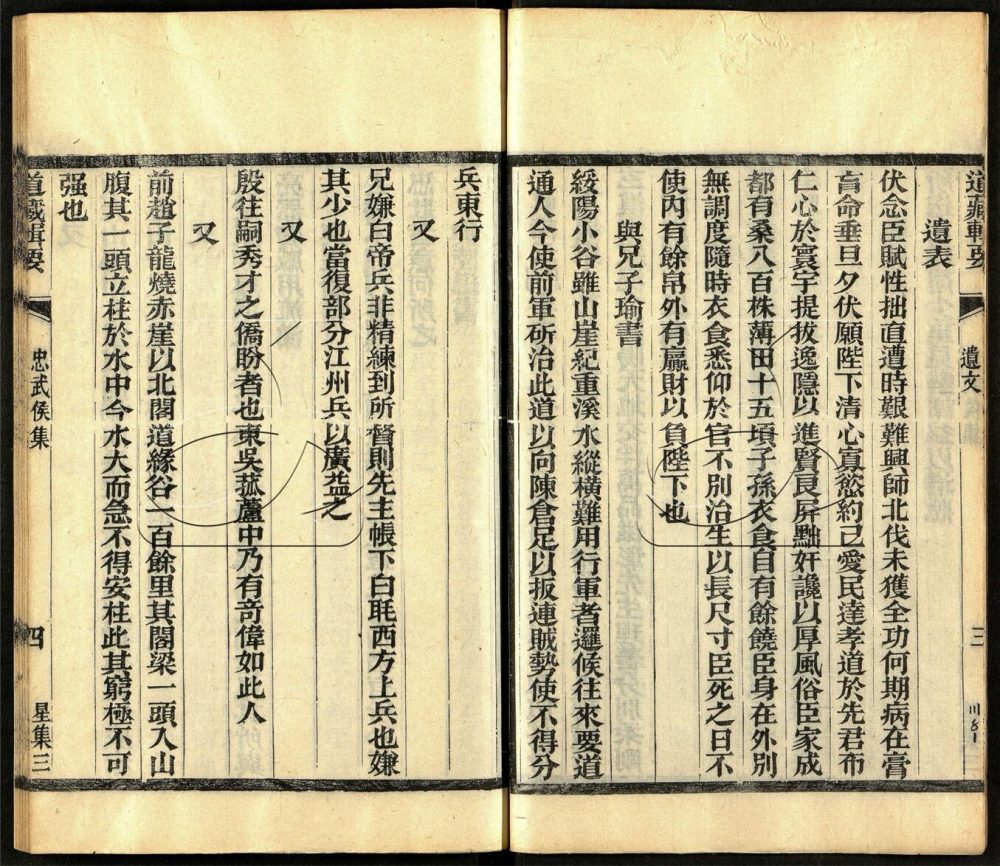 道藏輯要
遺文
三
遺表
伏念臣賦性拙直遭時艱難興師北伐未獲全功何期病在膏
肓命垂旦夕伏願陛下清心寡慾約己愛民達孝道於先君布
仁心於寰宇提拔逸隱以進賢良屏黜奸讒以厚風俗臣家成
都有桑八百株薄田十五頃子孫衣食自有餘饒臣身在外別
無調度隨時衣食悉仰於官不別治生以長尺寸臣死之日不
使內有餘帛外有贏財以負陛下也
與兄子瑜書
綏陽小谷雖山崖絕重溪水縱橫難用行軍者邏候往來要道
通人今使前軍斫治此道以向陳倉足以扳連賊勢使不得分
兵東行
又
兄嫌白帝兵非精練到所督則先主帳下白毦西方上兵也嫌
其少也當復部分江州兵以廣益之
又
殷往嗣秀才之僑盼者也東吳菰蘆中乃有奇偉如此人
又
前趙子龍燒赤崖以北閣道緣谷一百餘里其閣梁一頭入山
腹其一頭立柱於水中今水大而急不得安柱此其窮極不可
强也
道藏輯要
忠武侯集
四
星集三